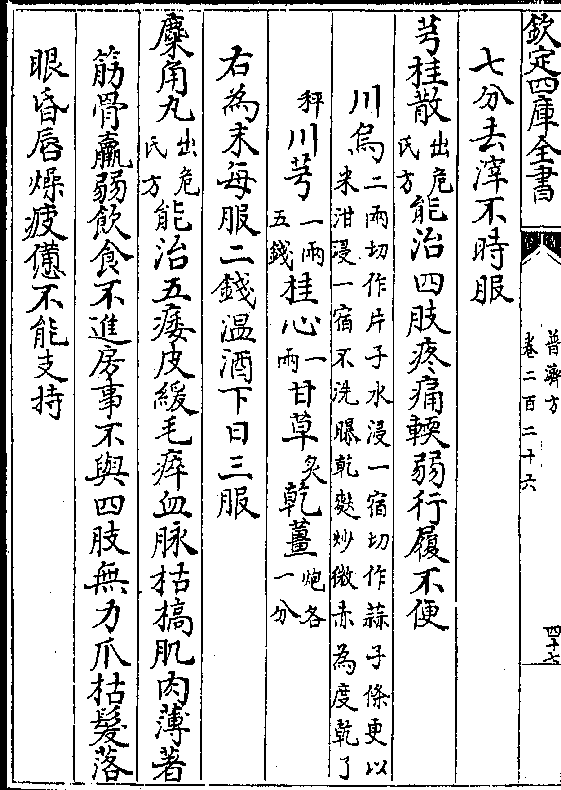 欽定四庫全書
普濟方
卷二百二十六
四十七
七分去滓不時服
芎桂散出危氏方能治四肢疼痛輭弱行履不便
川烏二兩切作片子水浸一宿切作蒜子條更以米泔浸一宿不洗曝乾麩炒微赤為度乾了
秤川芎一兩五錢桂心一兩甘草炙乾薑炮各一分
右為末每服二錢温酒下日三服
麋角丸出危氏方能治五痿皮緩毛瘁血脉枯槁肌肉薄著
筋骨羸弱飲食不進房事不與四肢無力爪枯髮落
眼昏唇燥疲憊不能支持